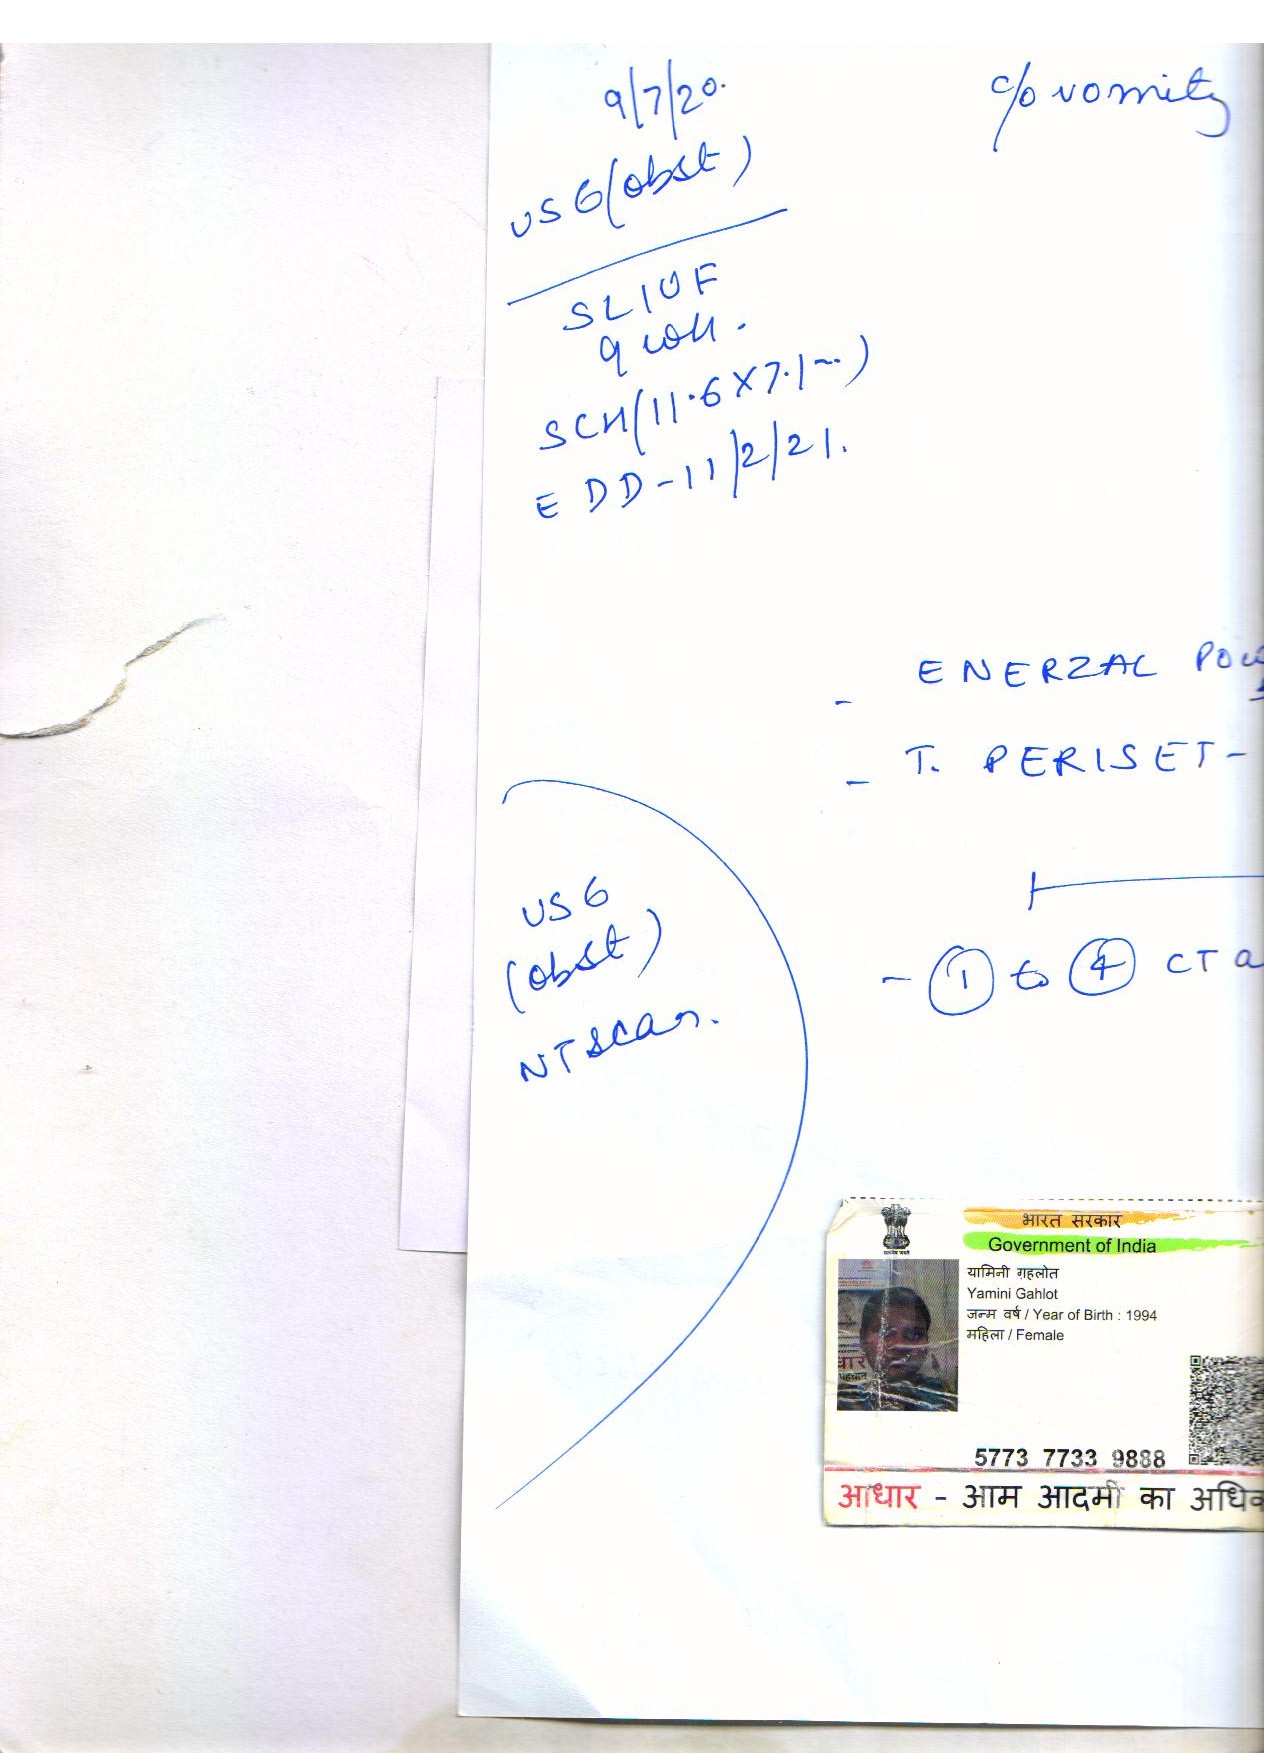 9/7/20.
c/o vomity
USG (obst)
SLIUF
9 wk.
SCH (11.6 X 7.1
EDD - 11/2/21.
- ENERZAL
- T. PERISET -
USG
(obst)
NT scan.
- 1 to 4 CT
भारत सरकार
Government of India
यामिनी गहलोत
Yamini Gahlot
जन्म वर्ष / Year of Birth : 1994
महिला / Female
5773 7733 9888
आधार - आम आदमी का